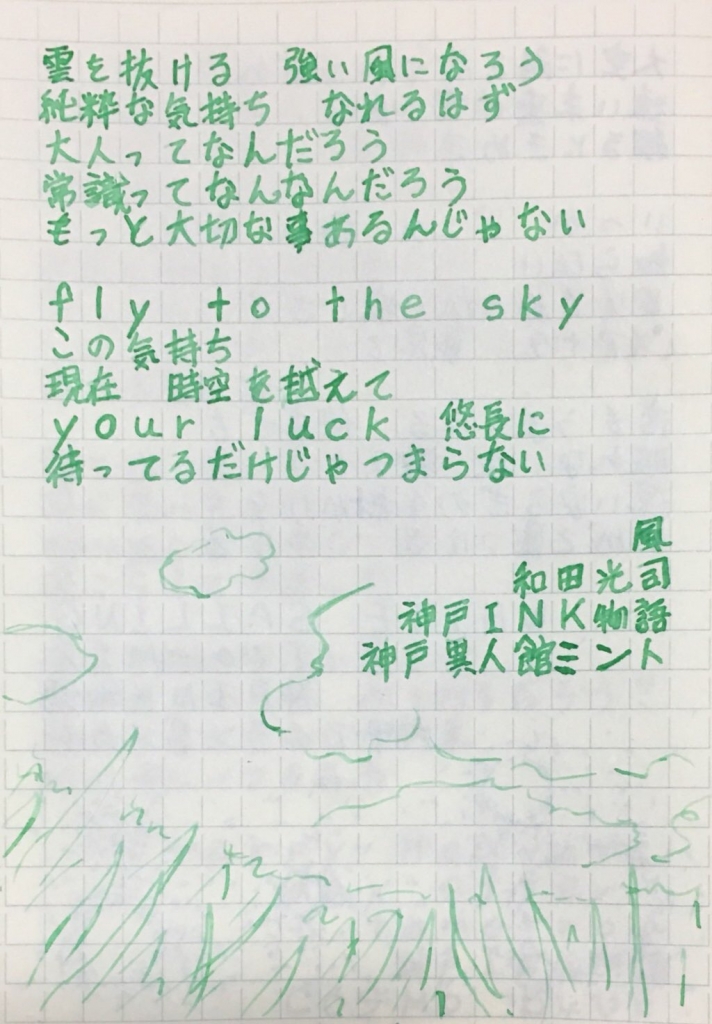 雲を抜ける　強い風になろう
純粋な気持ち　なれるはず
大人ってなんだろう
常識ってなんなんだろう
もっと大切な事あるんじゃない
fly to the sky
この気持ち
現在　時空を越えて
your luck　悠長に
待ってるだけじゃつまらない
風
和田光司
神戸INK物語
神戸異人館ミント